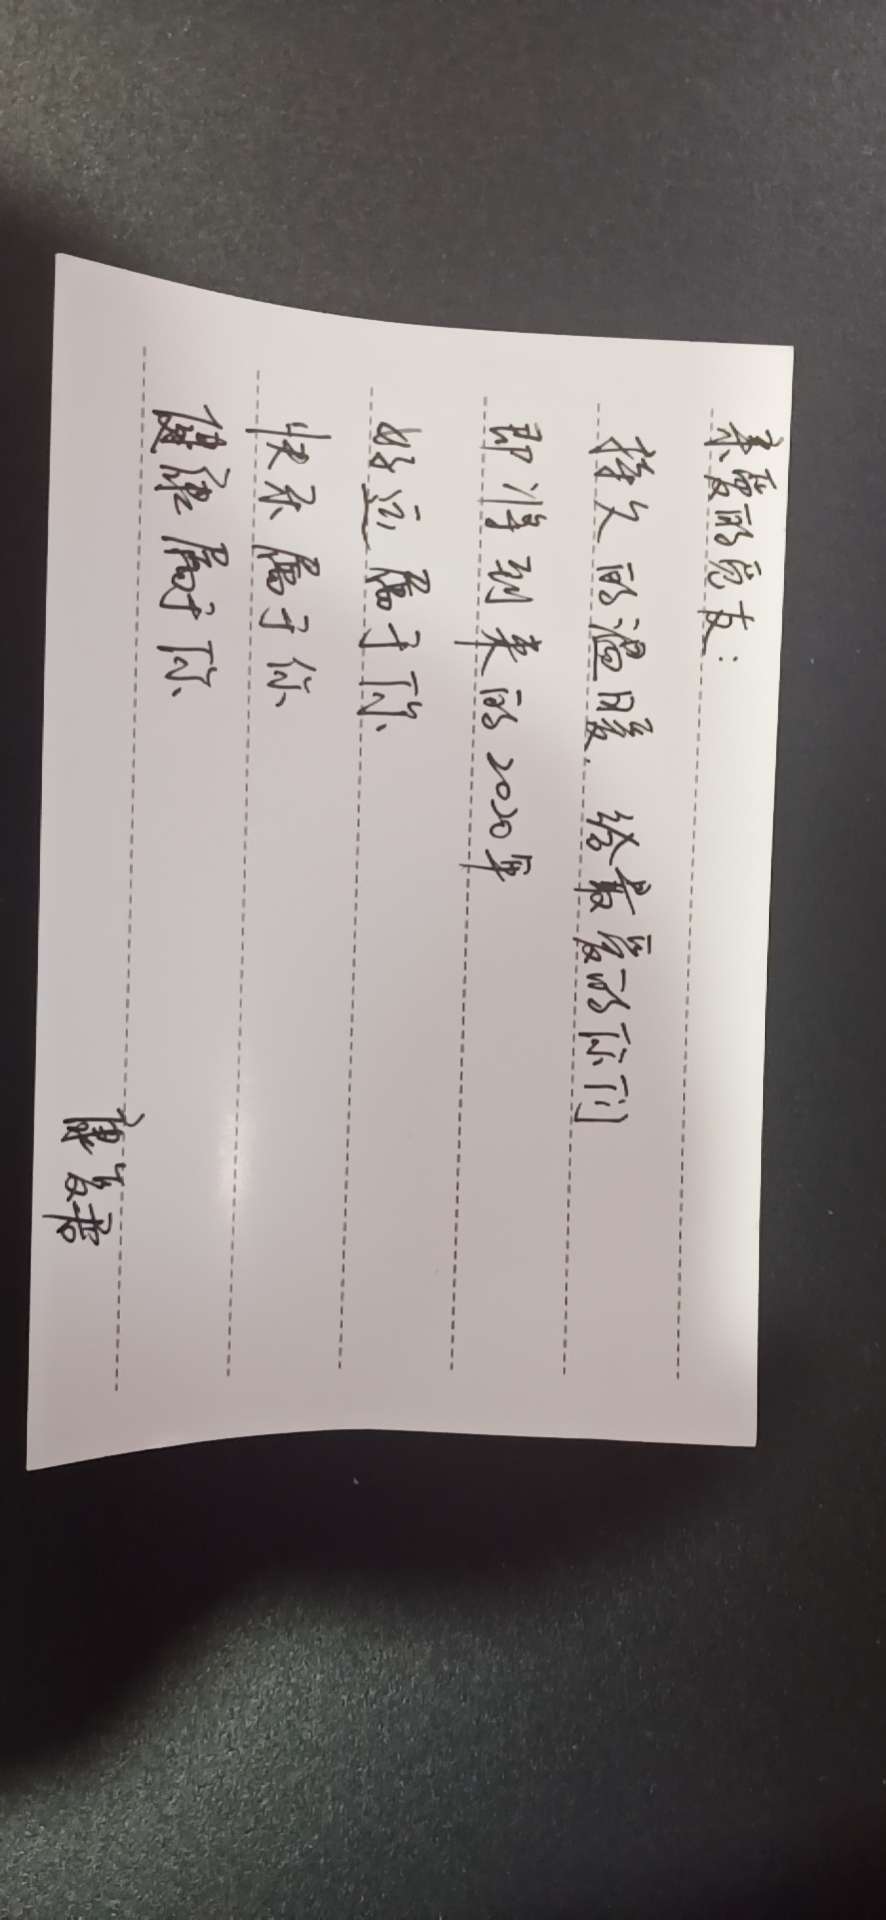 亲爱的宽友:
持久的温暖.给最爱的你们
即将到来的2020年
好运属于你
快乐属于你
健康属于你